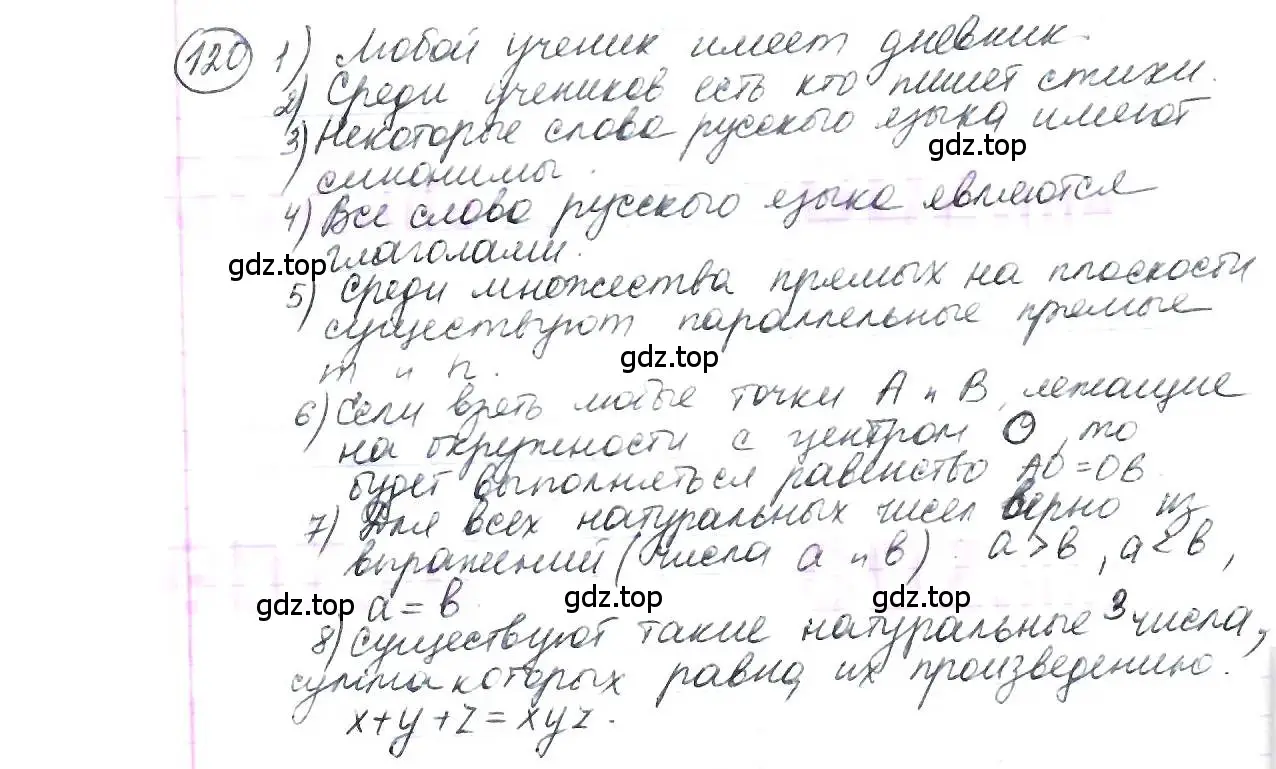 120 1) Любой ученик имеет дневник.
2) Среди учеников есть кто пишет стихи.
3) Некоторые слова русского языка имеют
gdz.top
синонимы.
4) Все слова русского языка являются
gdz.top глаголами.
5) Среди множества прямых на плоскости
существуют параллельные прямые
gdz.top
m и n.
6) Если взять любые точки A и B, лежащие
на окружности с центром O, то
будет выполняться равенство AO=OB.
7) Для всех натуральных чисел верно из
выражений (числа a и b) a>b, a<b,
gdz.top a = b gdz.top gdz.top
8) Существуют такие натуральные 3 числа,
сумма которых равна их произведению.
x+y+z=xyz.